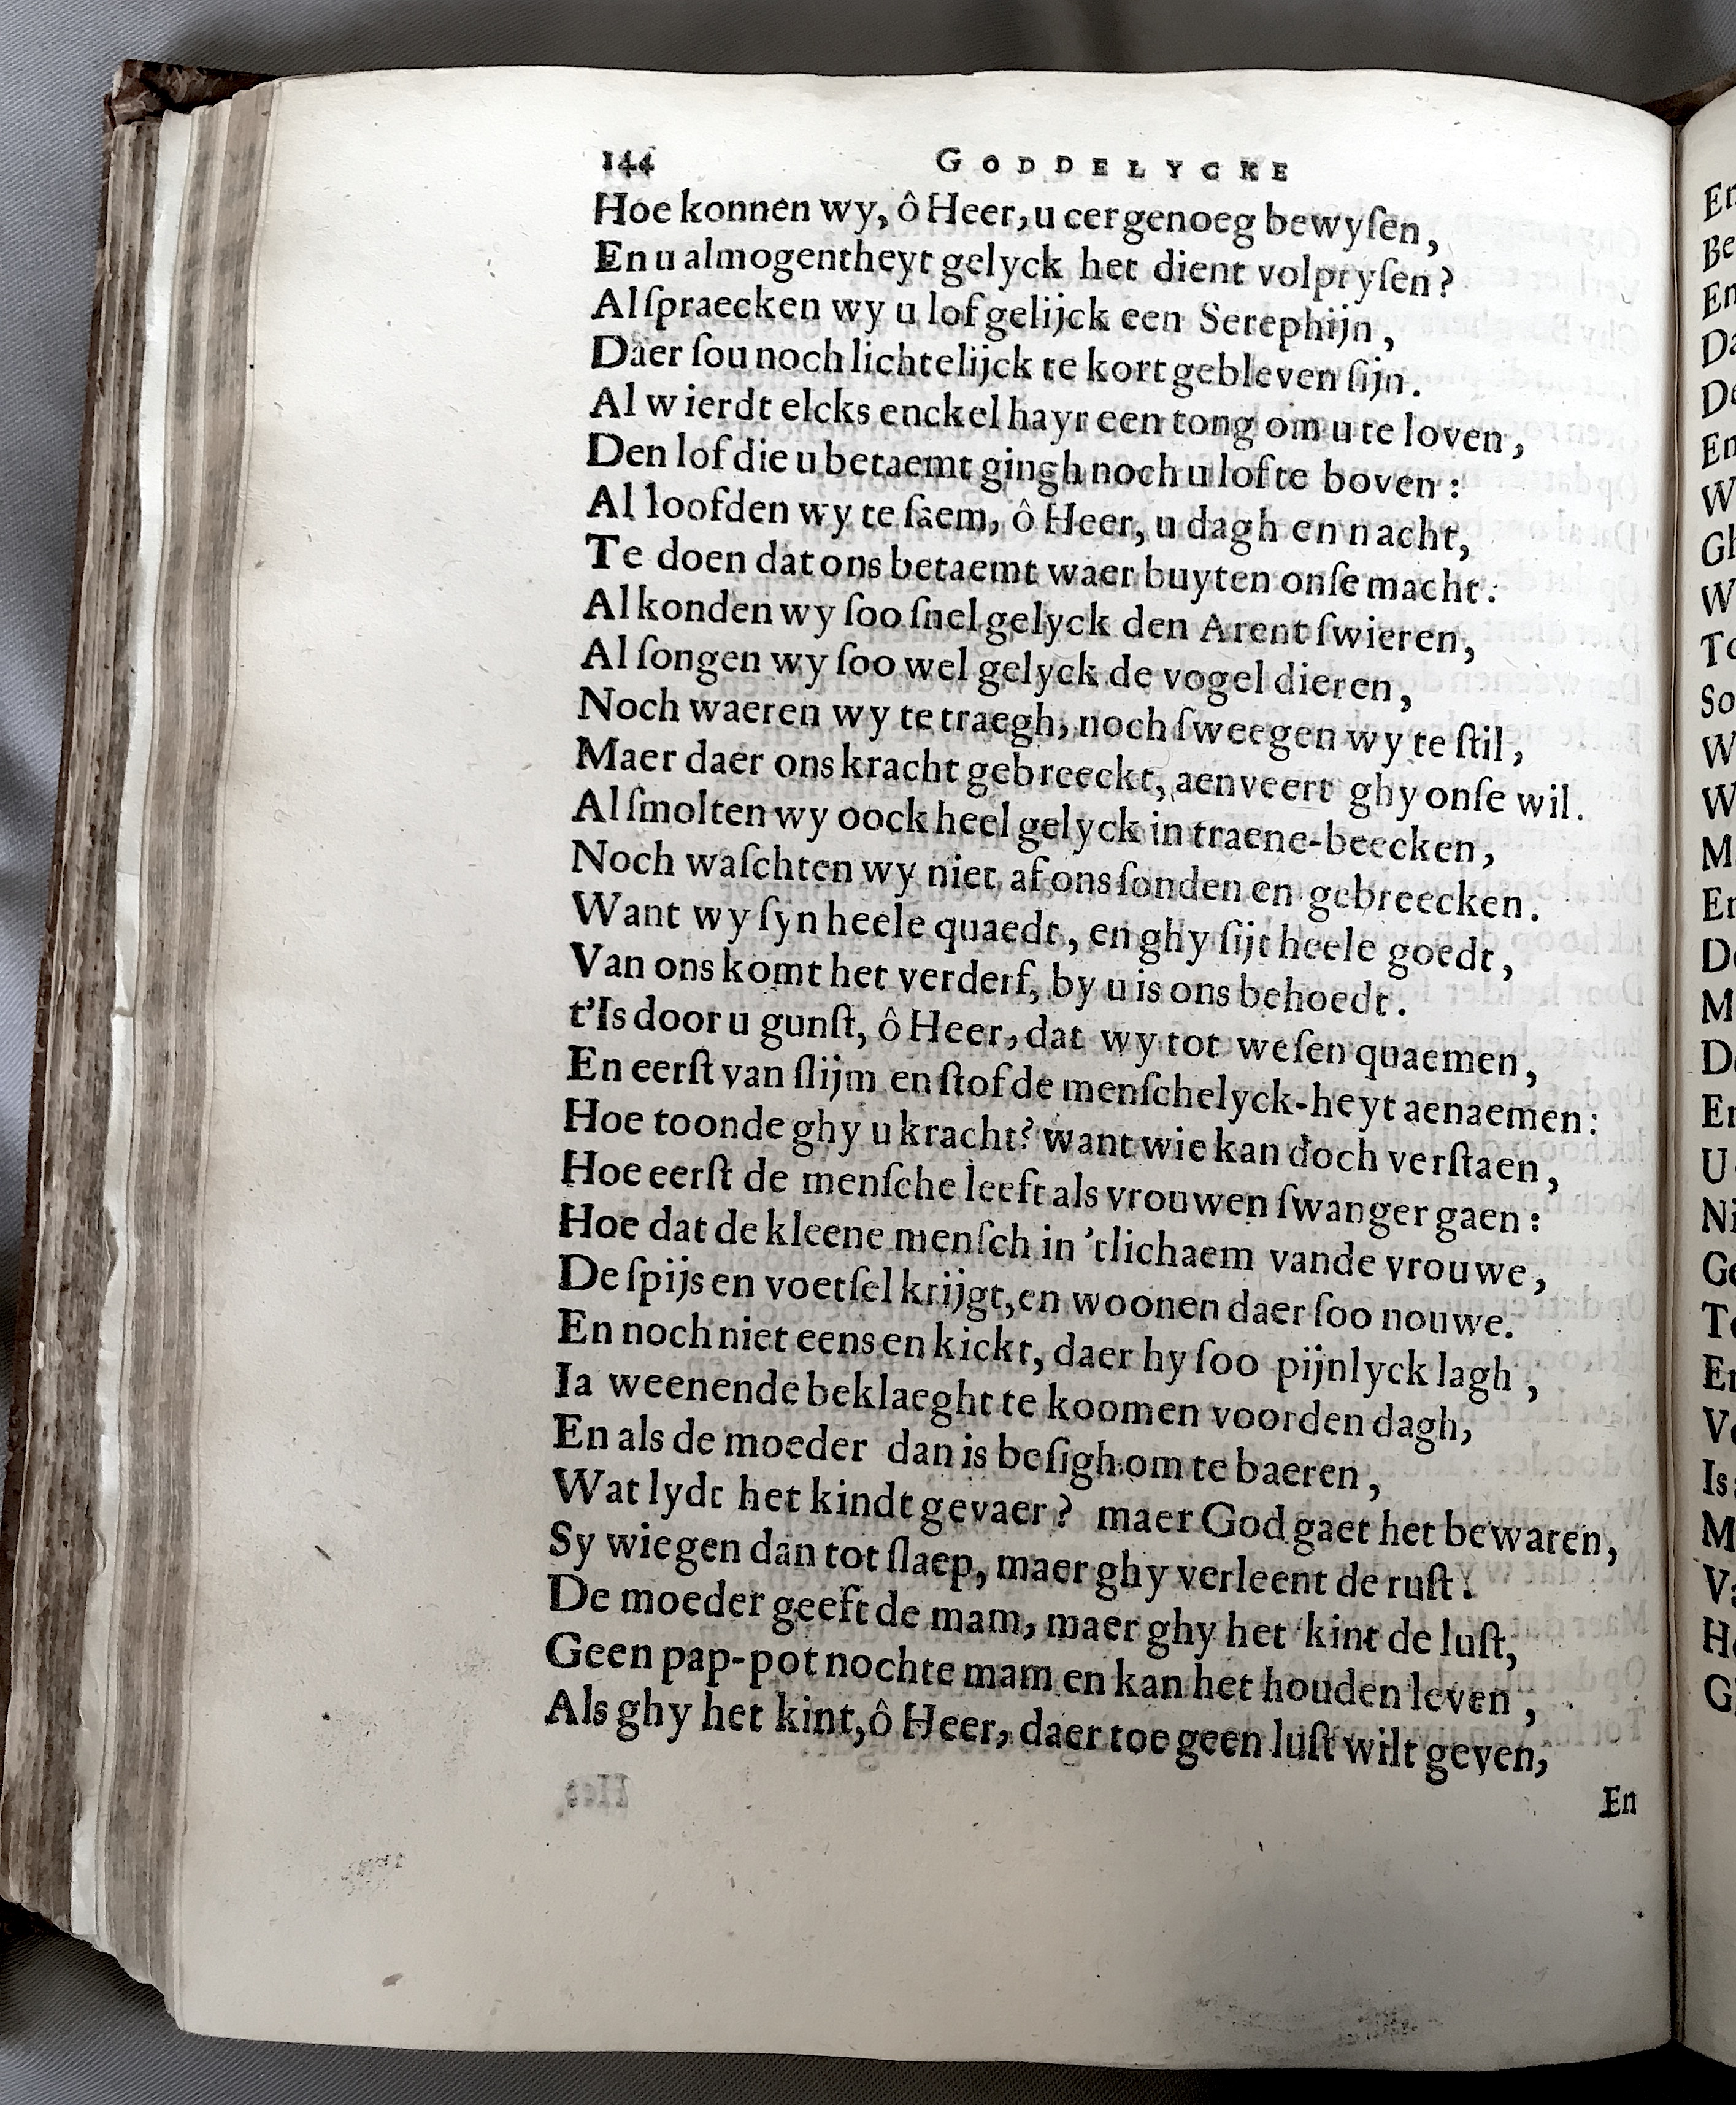 144 GODDELYCKE
Hoe konnen wy, ô Heer, u eer genoeg bewyſen,
En u almogentheyt gelyck het dient volpryſen?
Al ſpraecken wy u lof gelijck een Serephijn,
Daer ſou noch lichtelijck te kort gebleven ſijn.
Al wierdt elcks enckel hayr een tong om u te loven,
Den lof die u betaemt gingh noch u lof te boven:
Al loofden wy te ſaem, ô Heer, u dagh en nacht,
Te doen dat ons betaemt waer buyten onſe macht.
Al konden wy ſoo ſnel gelyck den Arent ſwieren,
Al ſongen wy ſoo wel gelyck de vogel dieren,
Noch waeren wy te traegh, noch ſweegen wy te ſtil,
Maer daer ons kracht gebreeckt, aenveert ghy onſe wil.
Al ſmolten wy oock heel gelyck in traene-beecken,
Noch waſchten wy niet af ons ſonden en gebreecken.
Want wy ſyn heele quaedt, en ghy ſijt heele goedt,
Van ons komt het verderf, by u is ons behoedt.
t'Is door u gunſt, ô Heer, dat wy tot weſen quaemen,
En eerſt van ſlijm en ſtof de menſchelyck-heyt aenaemen:
Hoe toonde ghy u kracht? want wie kan doch verſtaen,
Hoe eerſt de menſche leeft als vrouwen ſwanger gaen:
Hoe dat de kleene menſch in 'tlichaem vande vrouwe,
De ſpijs en voetſel krijgt, en woonen daer ſoo nouwe.
En noch niet eens en kickt, daer hy ſoo pijnlyck lagh,
Ia weenende beklaeght te koomen voor den dagh,
En als de moeder dan is beſigh om te baeren,
Wat lydt het kindt gevaer? maer God gaet het bewaren,
Sy wiegen dan tot ſlaep, maer ghy verleent de ruſt:
De moeder geeft de mam, maer ghy het kint de luſt,
Geen pap-pot nochte mam en kan het houden leven,
Als ghy het kint, ô Heer, daer toe geen luſt wilt geven,
En
En
Be
En
Da
De
En
W
Gh
W
To
So
W
W
M
En
De
M
De
En
U
Ni
Ge
Te
En
Ve
Is
M
Va
He
G